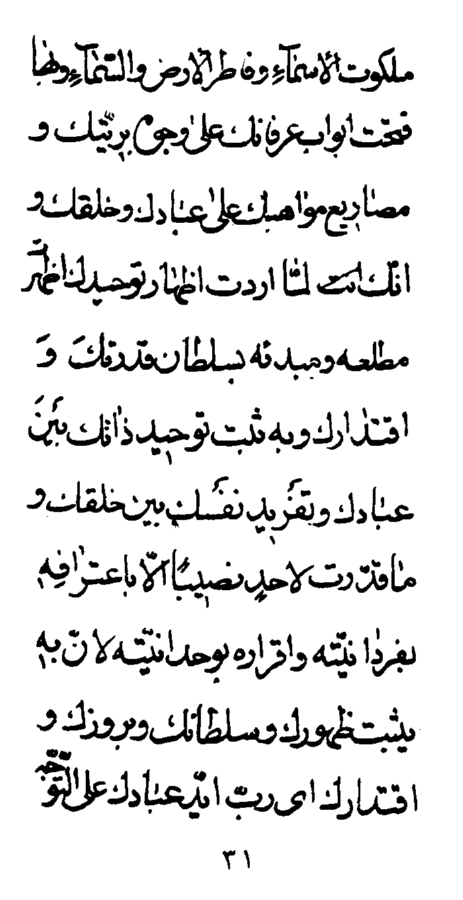 ملكوت الاسمآء وفاطر الارض والسّمآء وبها
فتحت ابواب عرفانك علی وجوه بريّتك و
مصاريع مواهبك علی عبادك وخلقك و
انّك انت لمّا اردت اظهار توحيدك اظهرت
مطلعه ومبدئه بسلطان قدرتكَ وَ
اقتدارك وبه ثبت توحيد ذاتك بَيْنَ
عبادك وتفريد نفسك بين خلقك و
ماقدّرت لاحدٍ نصيباً الّا باعترافه
بفردانيّته واقراره بوحدانيّته لانّ به
يثبت ظهورك وسلطانك وبروزك و
اقتدارك ای ربّ ايّد عبادك علی التّوجّه
٣١